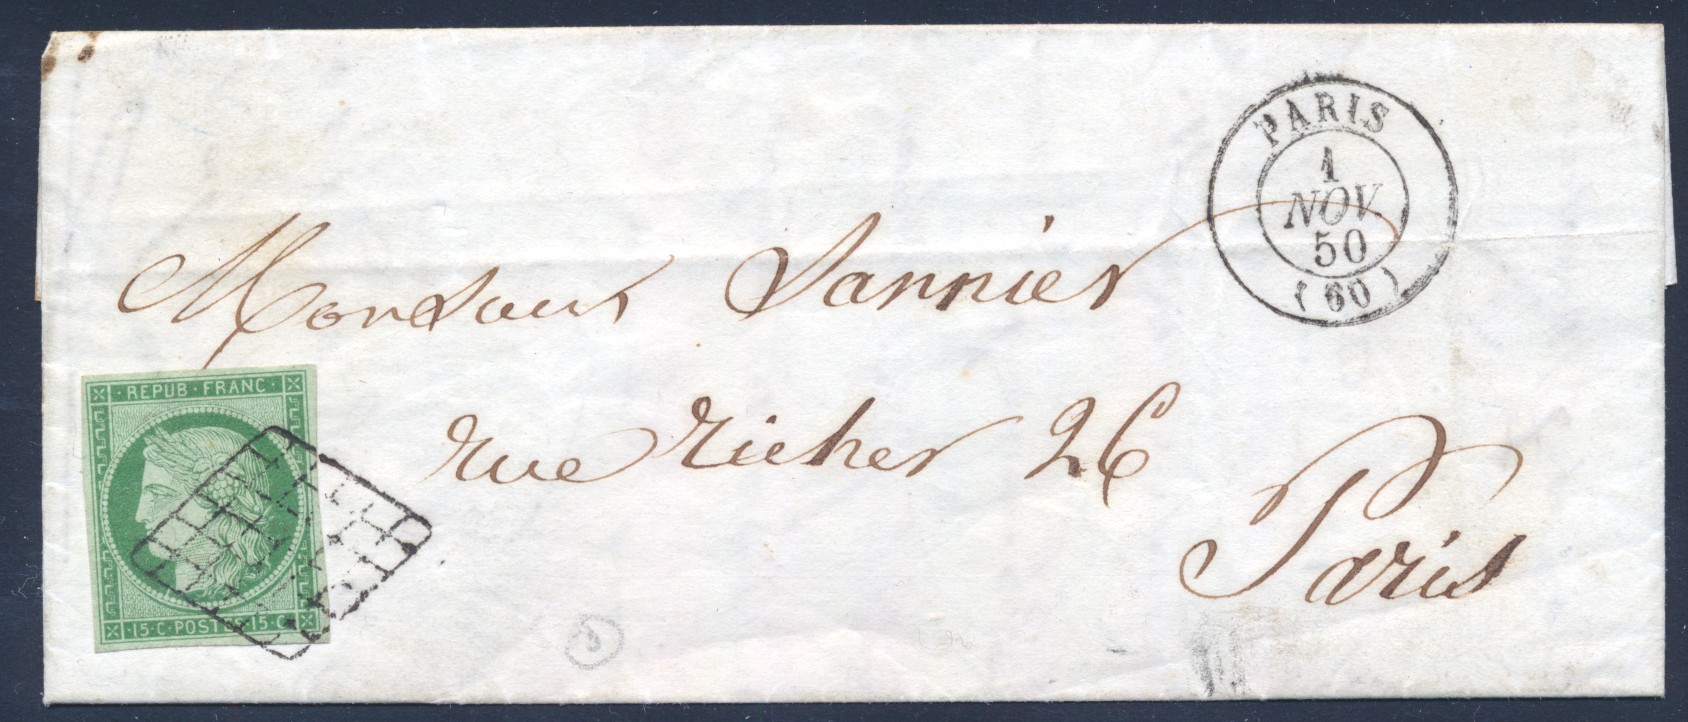 PARIS
1
NOV.
50
(60)
Monsieur Vannier
rue richer 26
Paris
REPUB·FRANC·
·15·C·POSTE·15·C·